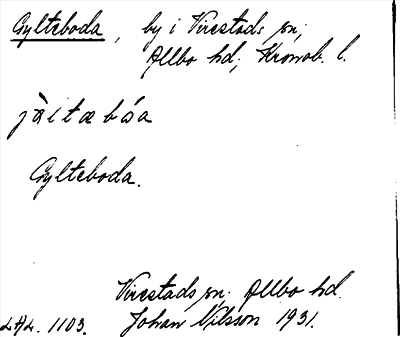 Gylteboda, by i Virestads sn,
Allbo hd; Kronob. l.
jàltæbóa
Gylteboda.
Virestads sn. Allbo hd.
LAL. 1103. Johan Nilsson 1931.